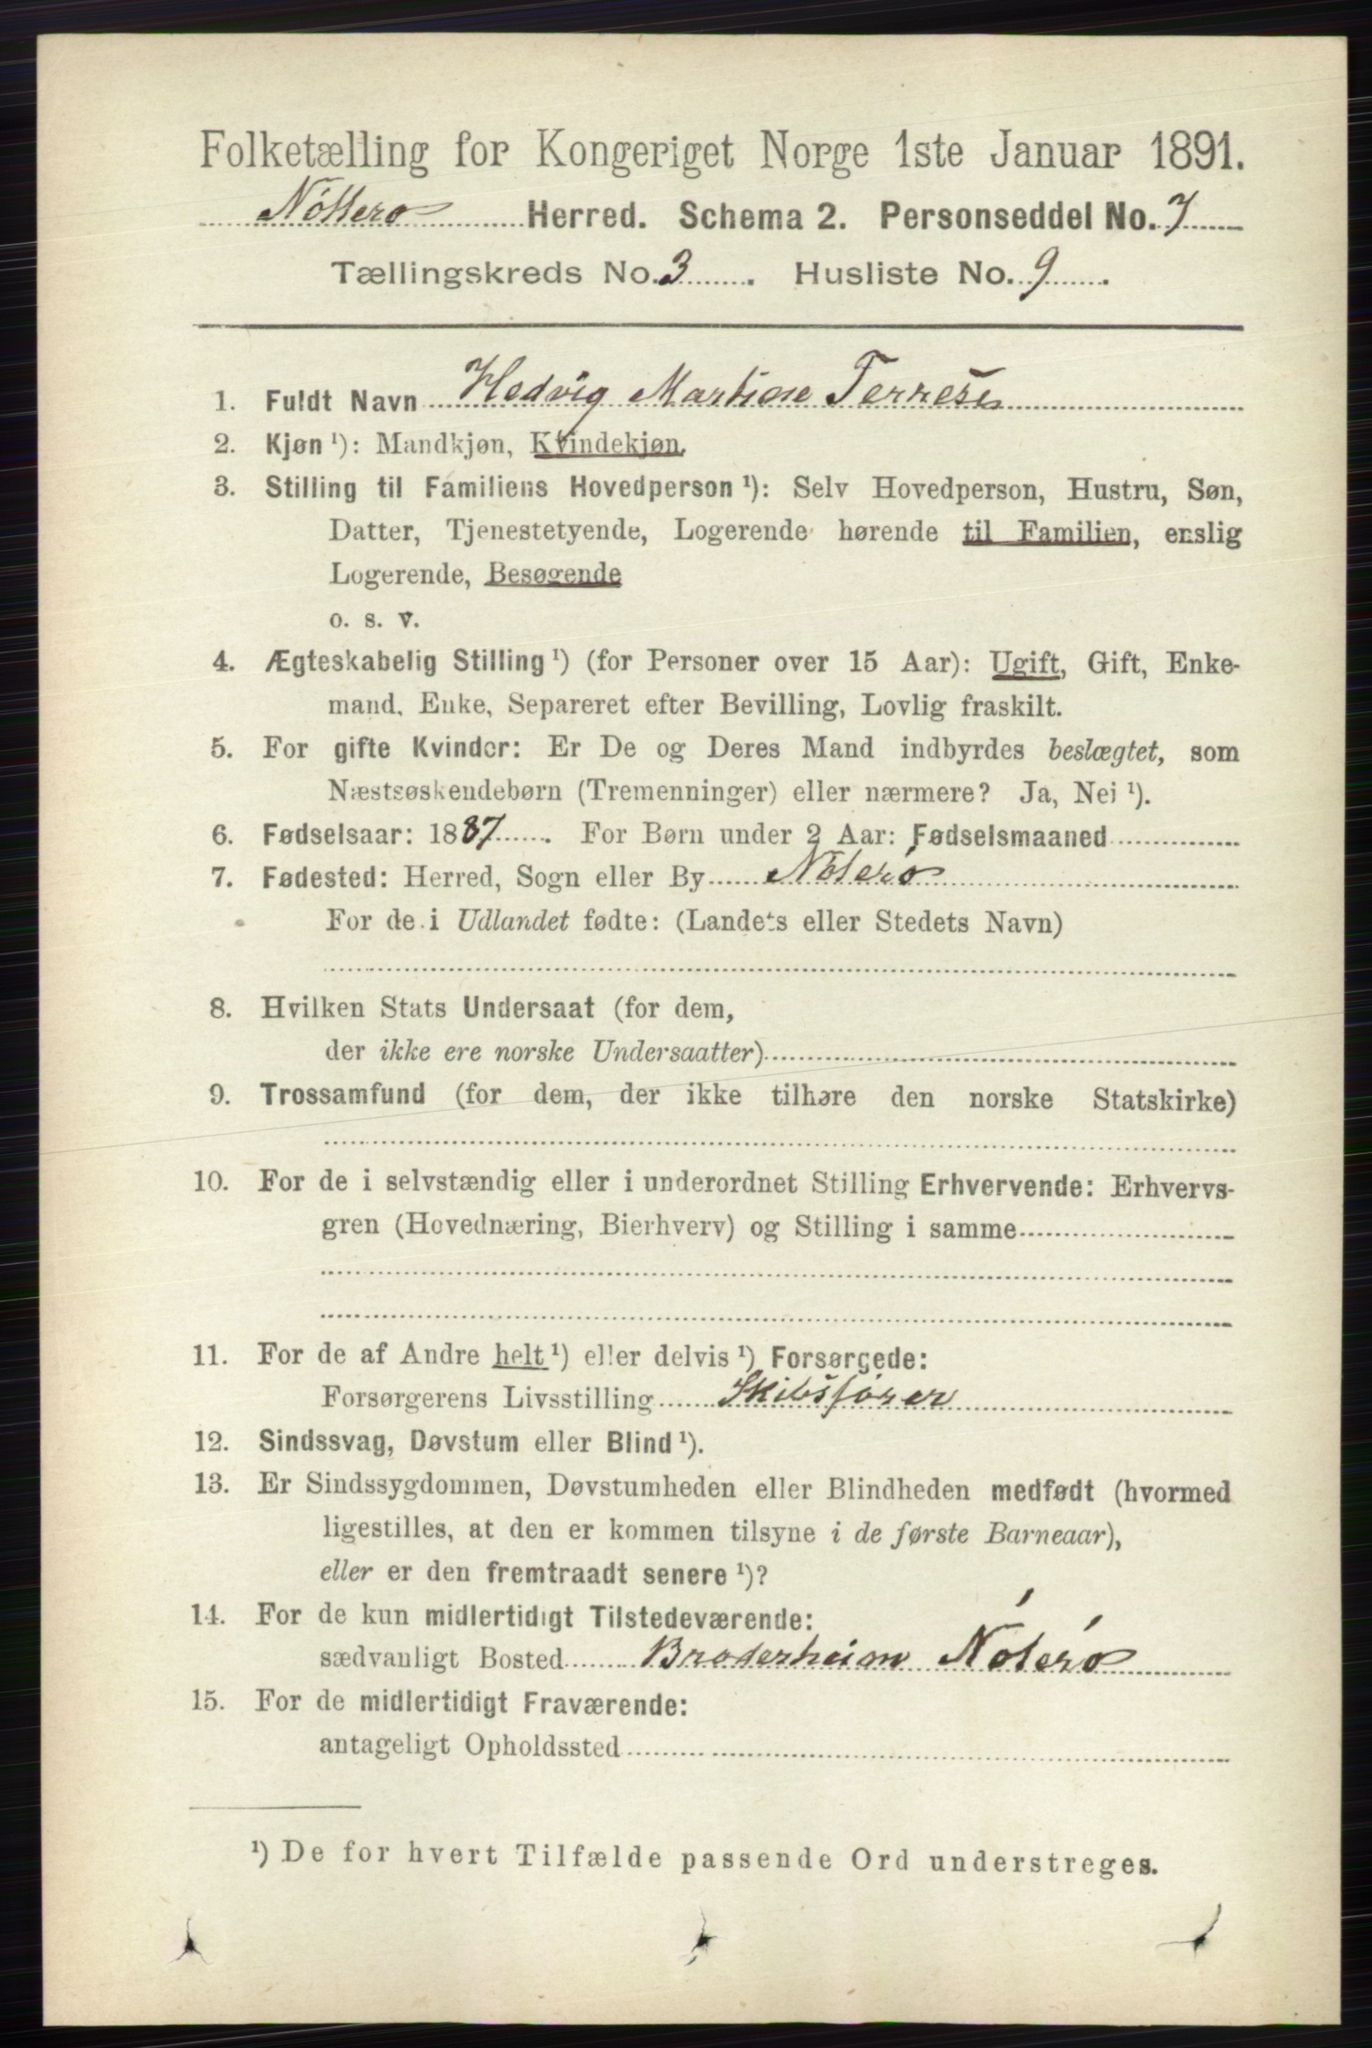 Folketælling for Kongeriget Norge 1ste Januar 1891.
Nøtterø Herred. Schema 2. Personseddel No. 7
Tællingskreds No. 3. Husliste No. 9.
1. Fuldt Navn Hedvig Martine Terresen
2. Kjøn ¹): Mandkjøn, Kvindekjøn.
3. Stilling til Familiens Hovedperson ¹): Selv Hovedperson, Hustru, Søn,
Datter, Tjenestetyende, Logerende hørende til Familien, enslig
Logerende, Besøgende
o. s. v.
4. Ægteskabelig Stilling ¹) (for Personer over 15 Aar): Ugift, Gift, Enke-
mand, Enke, Separeret efter Bevilling, Lovlig fraskilt.
5. For gifte Kvinder: Er De og Deres Mand indbyrdes beslægtet, som
Næstsøskendebørn (Tremenninger) eller nærmere? Ja, Nei ¹).
6. Fødselsaar: 1887. For Børn under 2 Aar: Fødselsmaaned
7. Fødested: Herred, Sogn eller By Nøterø
For de i Udlandet fødte: (Landets eller Stedets Navn)
8. Hvilken Stats Undersaat (for dem,
der ikke ere norske Undersaatter)
9. Trossamfund (for dem, der ikke tilhøre den norske Statskirke)
10. For de i selvstændig eller i underordnet Stilling Erhvervende: Erhvervs-
gren (Hovednæring, Bierhverv) og Stilling i samme
11. For de af Andre helt ¹) eller delvis ¹) Forsørgede:
Forsørgerens Livsstilling Skibsfører
12. Sindssvag, Døvstum eller Blind ¹).
13. Er Sindssygdommen, Døvstumheden eller Blindheden medfødt (hvormed
ligestilles, at den er kommen tilsyne i de første Barneaar),
eller er den fremtraadt senere ¹)?
14. For de kun midlertidigt Tilstedeværende:
sædvanligt Bosted Broderheim Nøterø
15. For de midlertidigt Fraværende:
antageligt Opholdssted
¹) De for hvert Tilfælde passende Ord understreges.